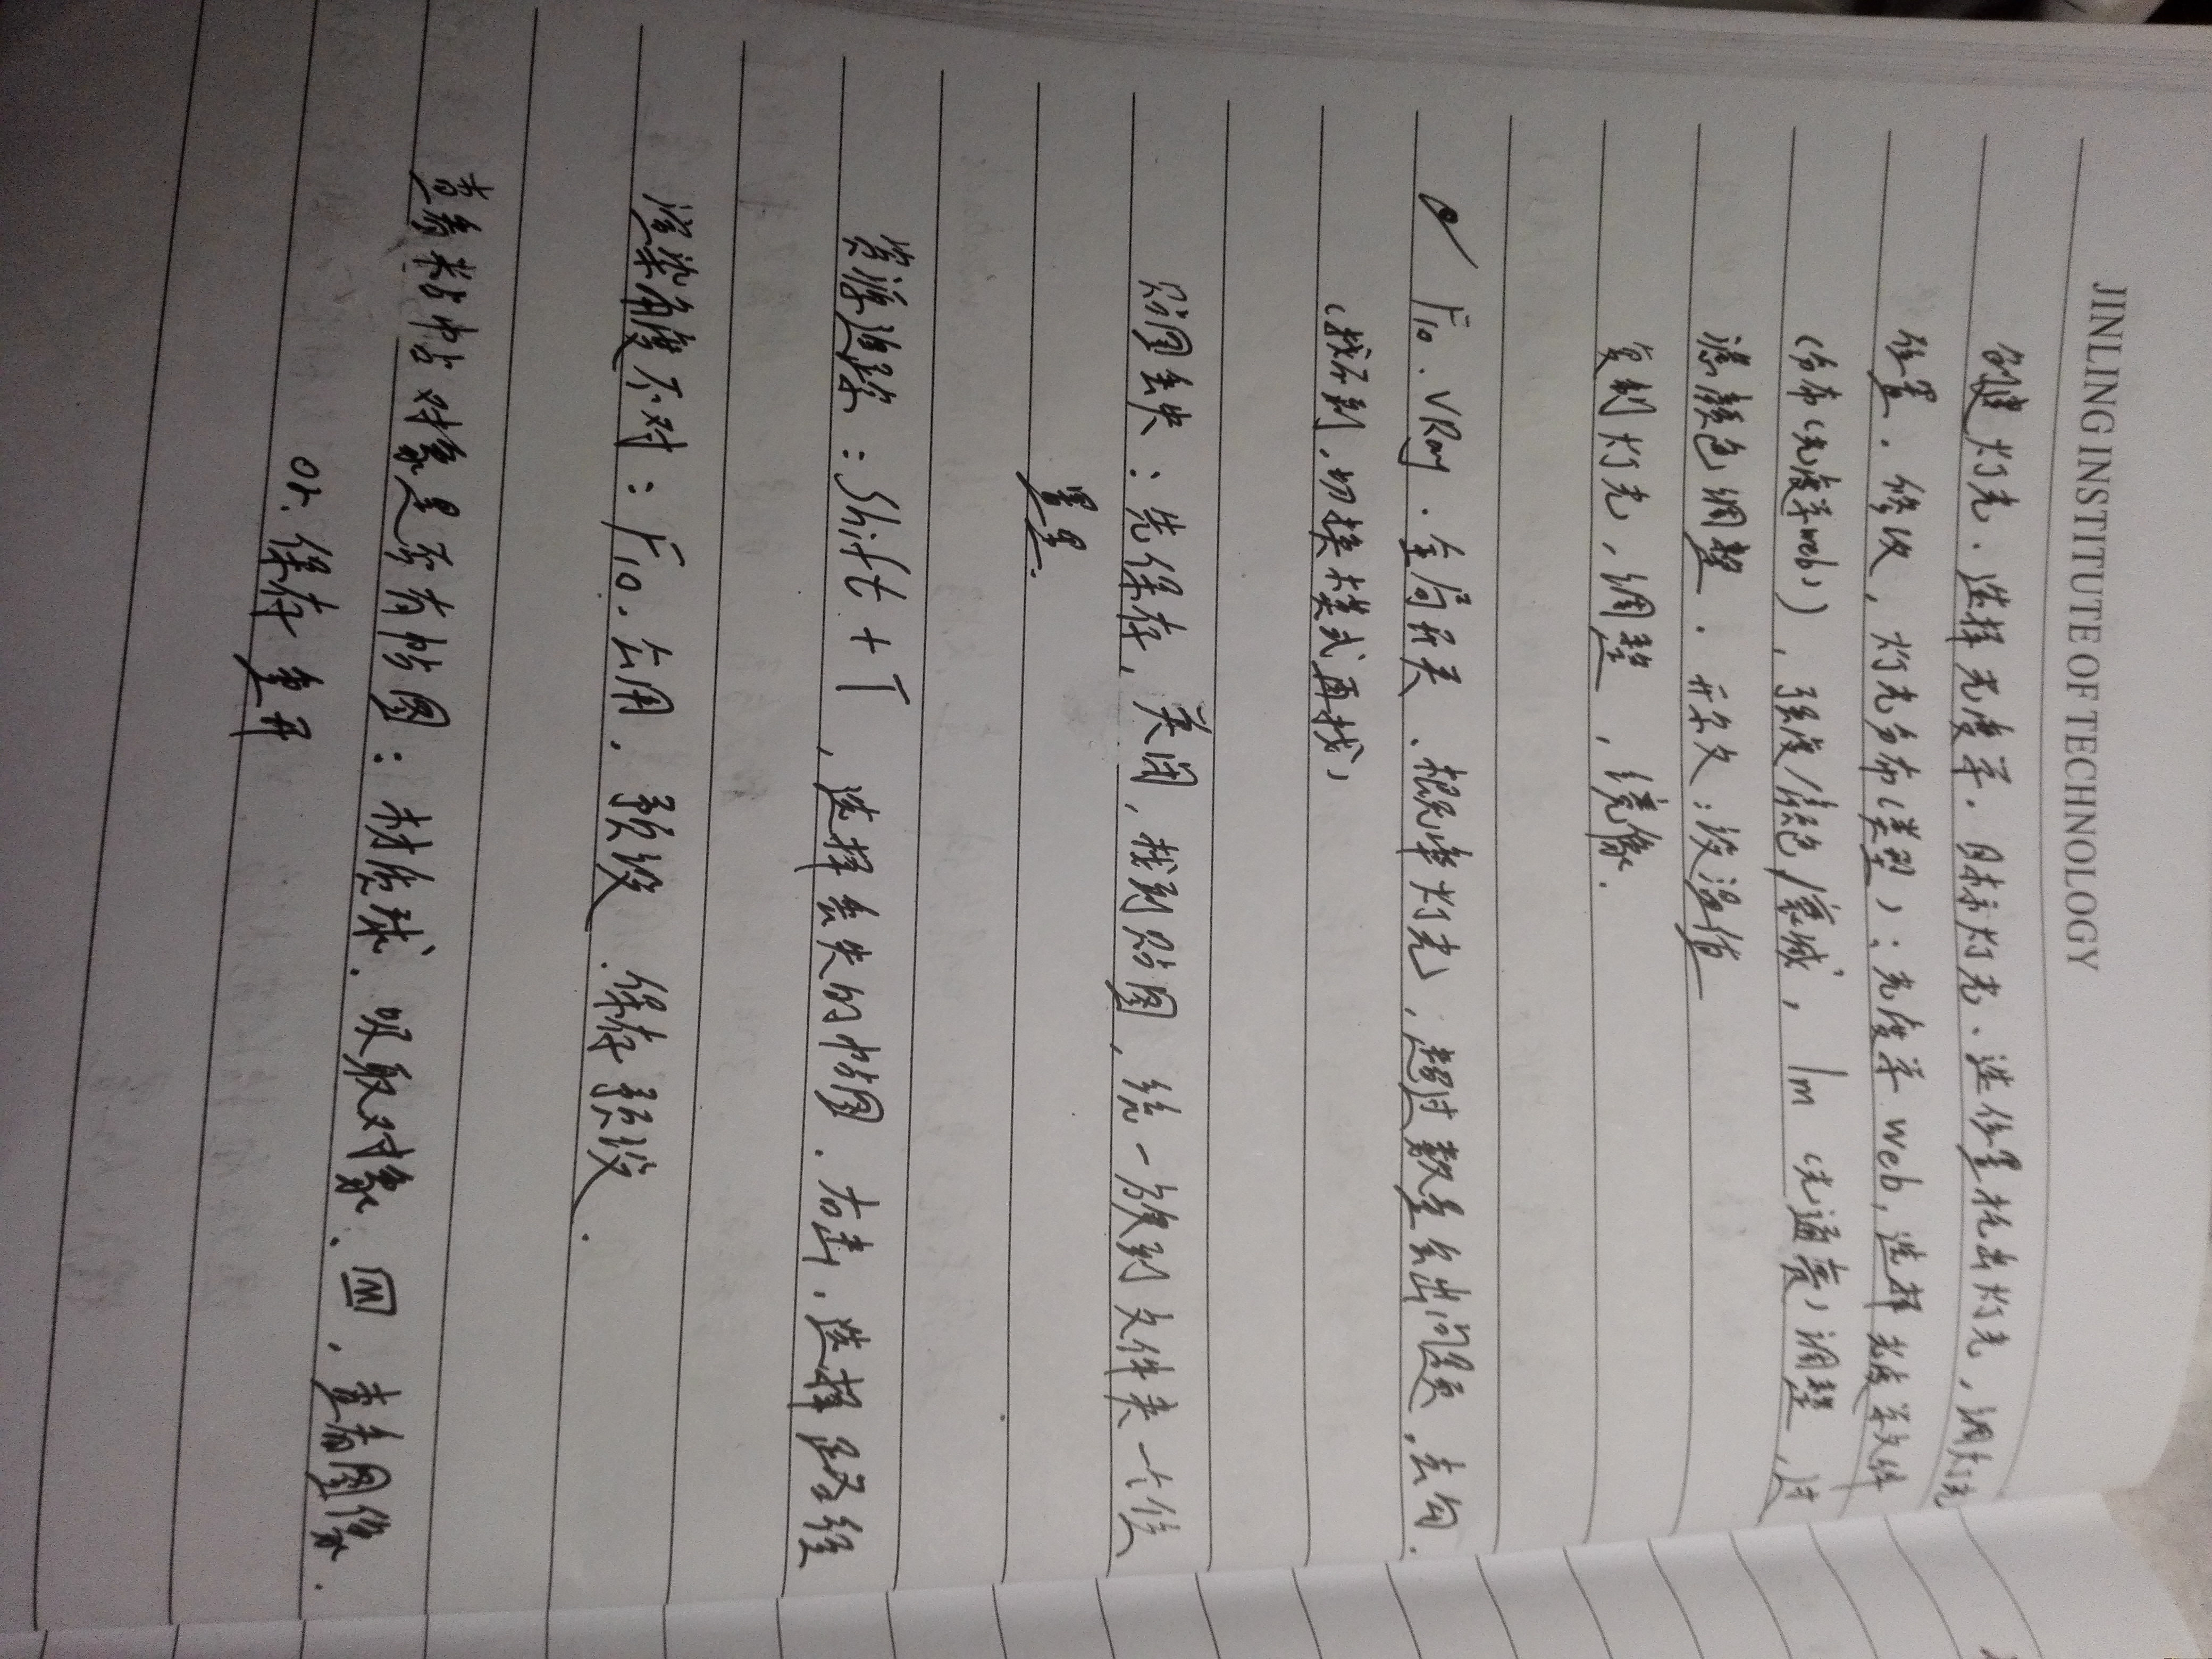 JINLING INSTITUTE OF TECHNOLOGY
创建灯光．选择光度学．目标灯光、选位置拖出灯光，调灯光
位置．修改，灯光分布（类型）：光度学web，选择光度学文件
（分布（光度学web）），强度/颜色/衰减，lm（光通亮）调整，过
滤颜色调整．开尔文：设温值
复制灯光，调整，镜像．
F10．VRay．全局开关、概率灯光，超过数量会出问题，去勾．
（找不到，切换模式再找）
贴图丢失：先保存，关闭，找到贴图，统一放到文件夹一个位
置里．
资源追踪：Shift+T，选择丢失的帖图．右击，选择路径
渲染角度不对：F10．公用．预设．保存预设．
查看粘帖对象是否有帖图：材质球．吸取对象、M，查看图像．
or．保存重开